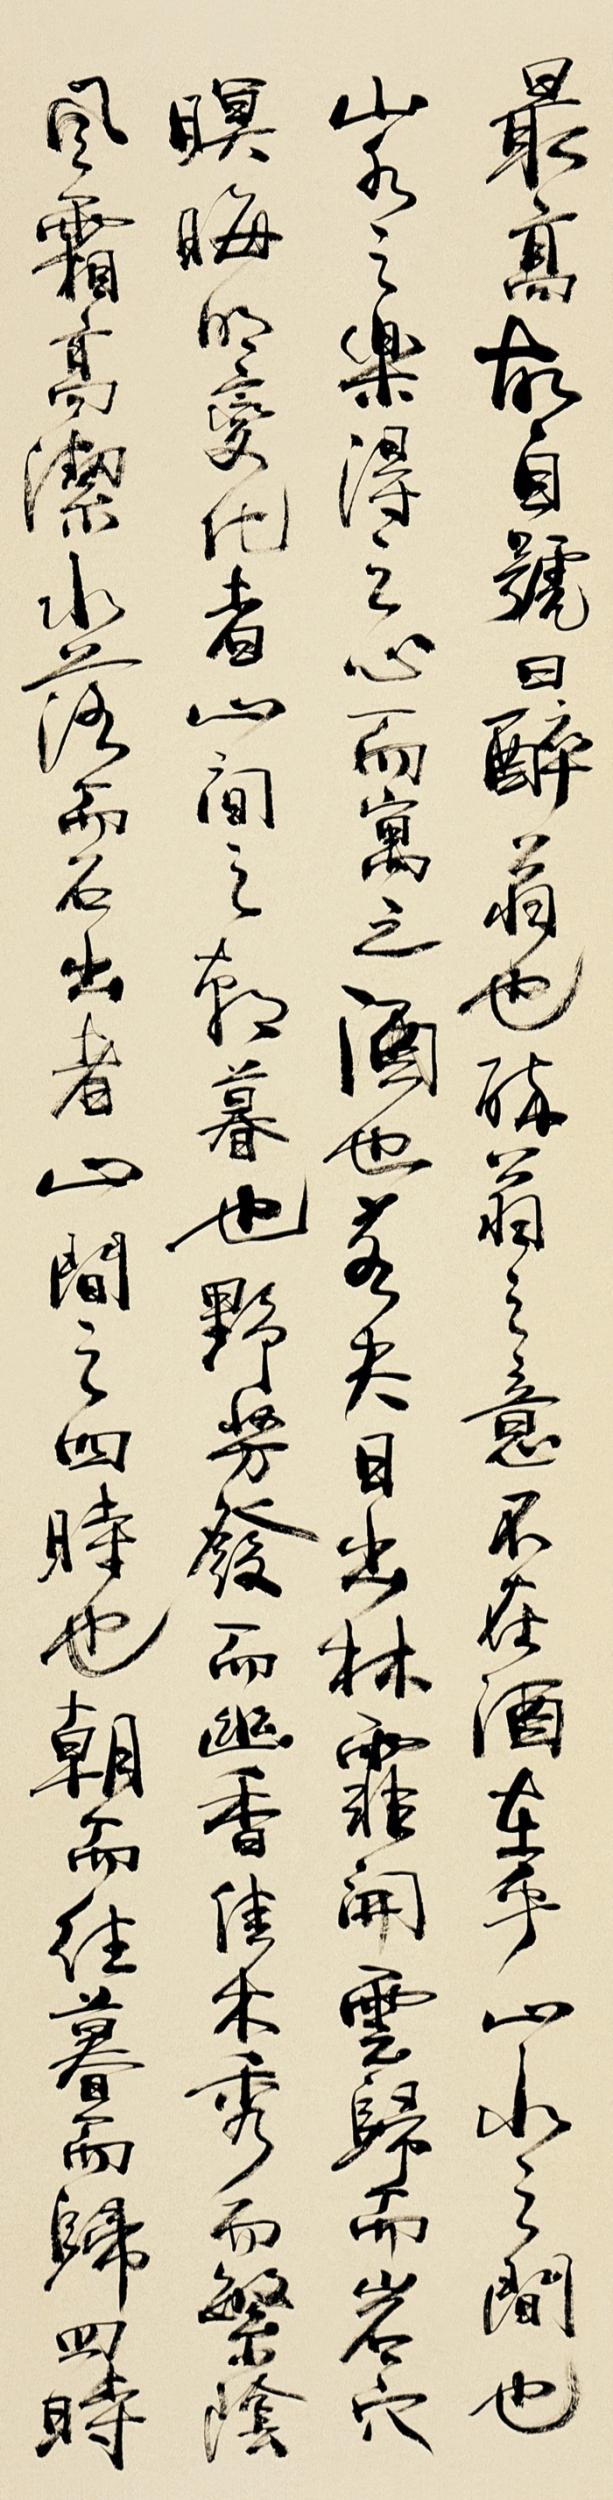 最高故自號曰醉翁也醉翁之意不在酒在乎山水之間也
山水之樂得之心而寓之酒也若夫日出林霏開雲歸而岩穴
暝晦明變化者山間之朝暮也野芳發而幽香佳木秀而繁陰
風霜高潔水落而石出者山間之四時也朝而往暮而歸四時